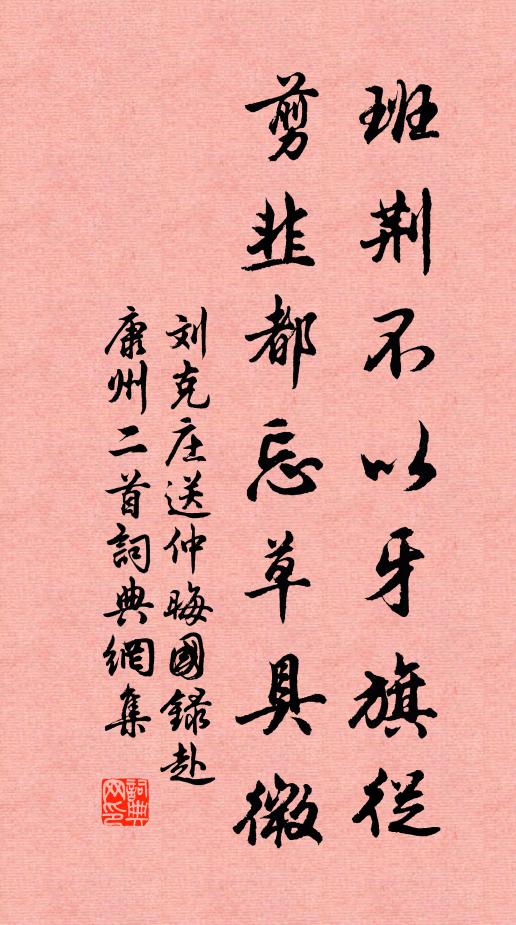 班荆不以牙旗從
剪韭都忘草具微
刘克庄送仲晦國録赴
康州二首詞典網集
詞典网印